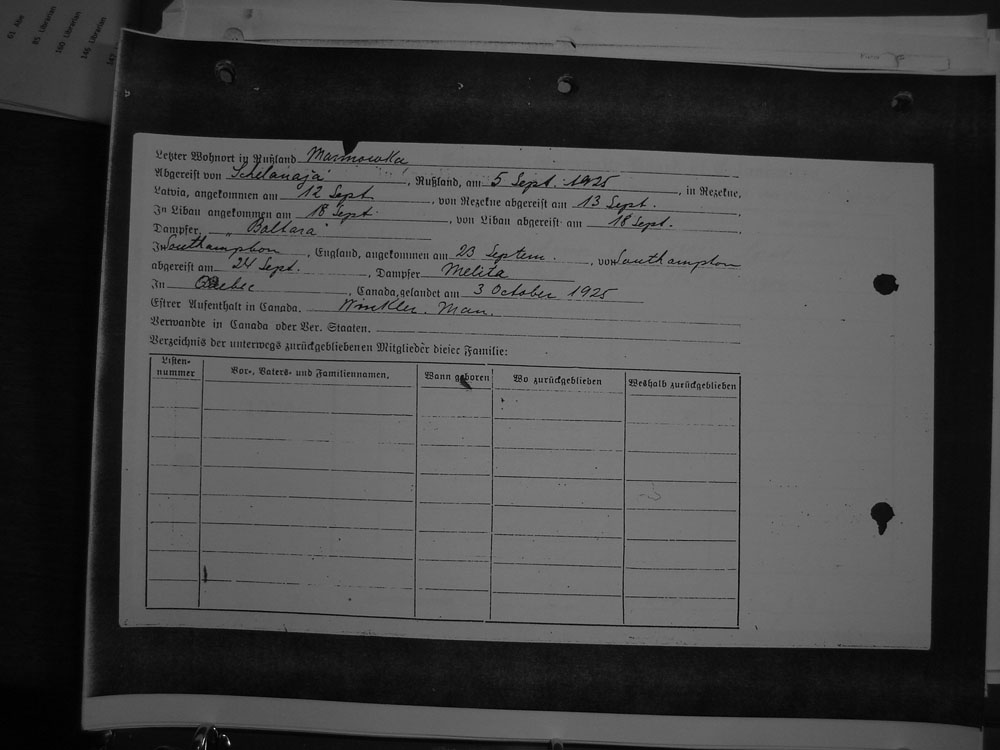 61 Abe
85 Librarian
100 Librarian
146 Librarian
147
Letzter Wohnort in Rußland Masnowka
Abgereist von Schelanaja, Rußland, am 5 Sept. 1925, in Rezekne,
Latvia, angekommen am 12 Sept, von Rezekne abgereist am 13 Sept.
In Libau angekommen am 18 Sept, von Libau abgereist am 18 Sept.
Dampfer, „Baltara"
In Southampton, England, angekommen am 23 Septem., von Southampton
abgereist am 24 Sept., Dampfer Melita
In Quebec, Canada, gelandet am 3 October 1925
Erster Aufenthalt in Canada. Winkler. Man.
Verwandte in Canada oder Ver. Staaten.
Verzeichnis der unterwegs zurückgebliebenen Mitglieder dieser Familie:
Listen-nummer Vor-, Vaters- und Familiennamen. Wann geboren Wo zurückgeblieben Weshalb zurückgeblieben